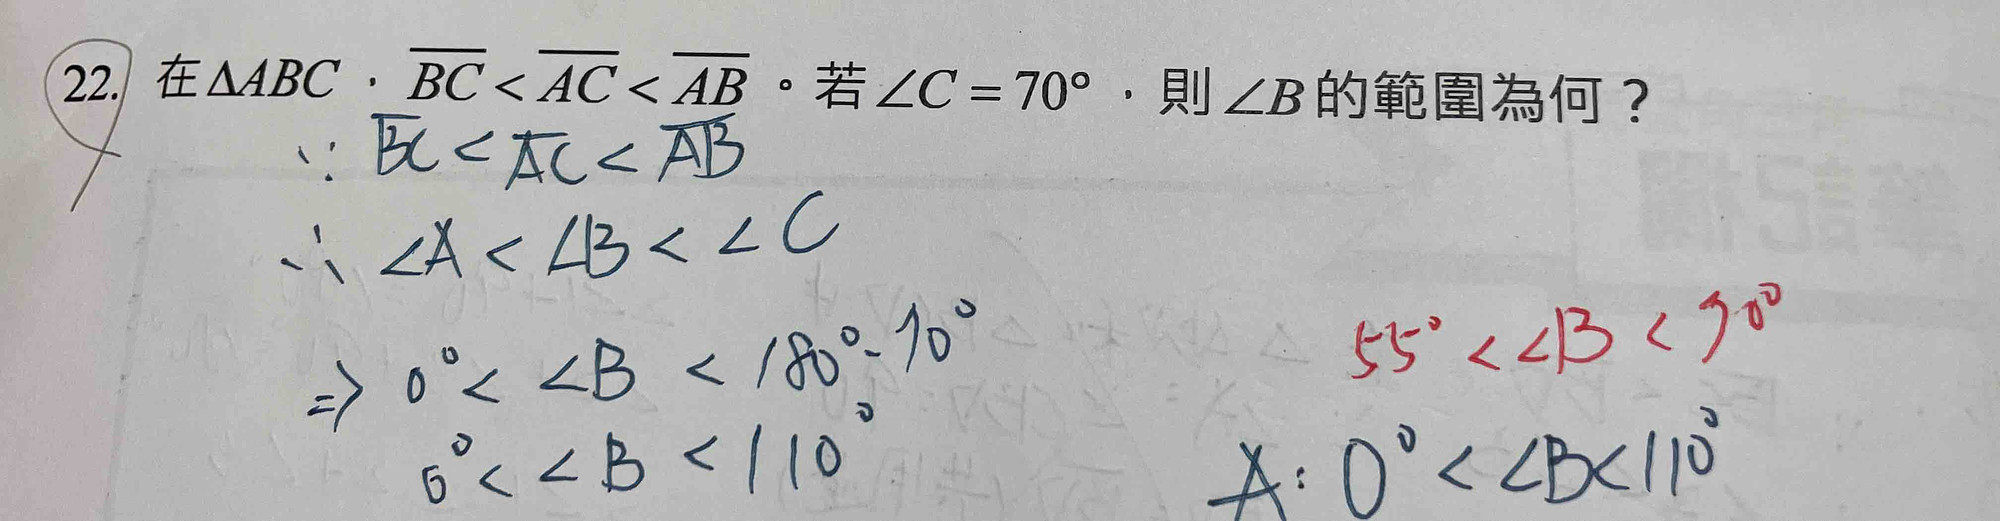 22. 在ΔABC，BC < AC < AB。若∠C = 70°，則∠B的範圍為何？
∵ BC < AC < AB
∴ ∠A < ∠B < ∠C
⇒ 0° < ∠B < 180° - 70°
55° < ∠B < 70°
0° < ∠B < 110°
A: 0° < ∠B < 110°
筆記欄